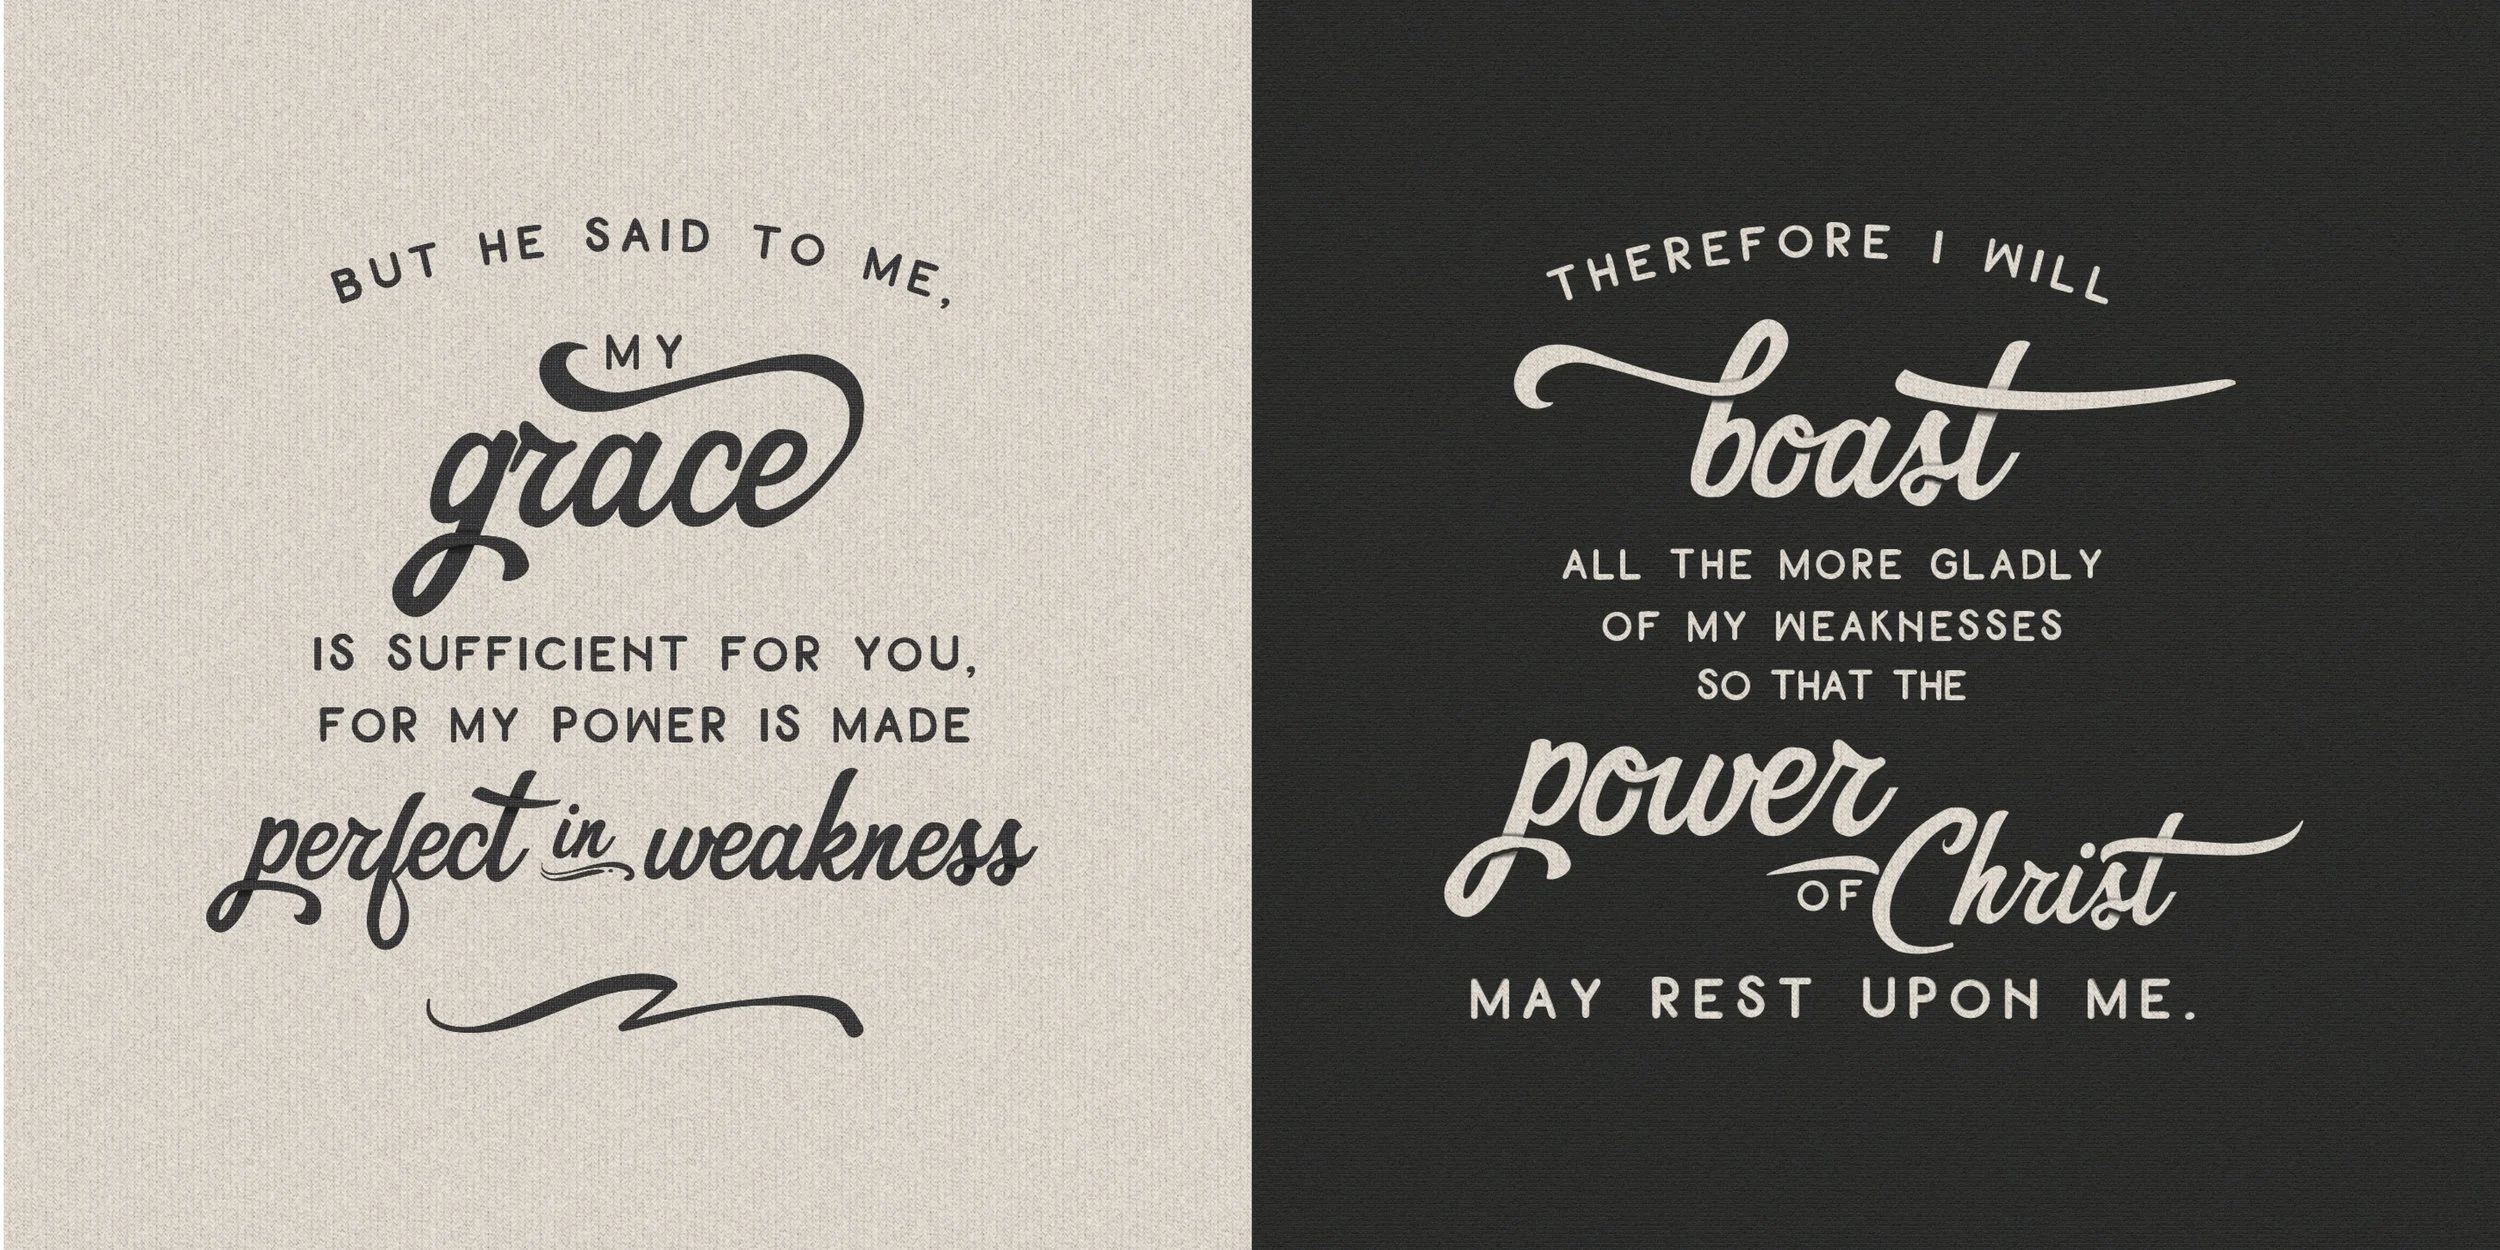 BUT HE SAID TO ME,
MY
grace
IS SUFFICIENT FOR YOU,
FOR MY POWER IS MADE
perfect in weakness
THEREFORE I WILL
boast
ALL THE MORE GLADLY
OF MY WEAKNESSES
SO THAT THE
power
OF Christ
MAY REST UPON ME.